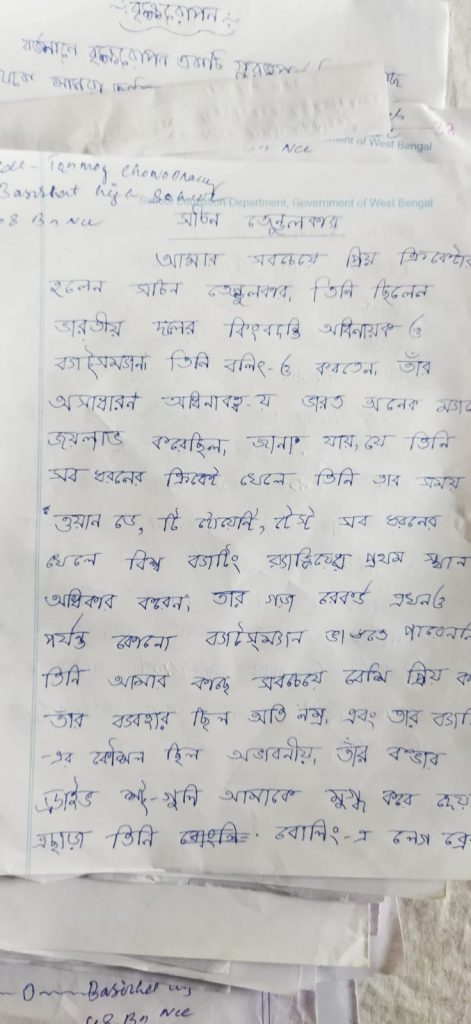 বৃক্ষরোপন
বর্তমানে বৃক্ষরোপন একটি
ment of West Bengal
Ncc
Cdt - Tanmoy Chowdhury
Basirhat high School
Department, Government of West Bengal
68 Bn Ncc
সচিন তেন্ডুলকার
আমার সবচেয়ে প্রিয় ক্রিকেটার
হলেন সচিন তেন্ডুলকার, তিনি ছিলেন
ভারতীয় দলের কিংবদন্তি অধিনায়ক ও
ব্যাটসম্যান। তিনি বলিং-ও করতেন, তাঁর
অসাধারন অধিনাবত্ব-য ভারত অনেক ম্যাচ
জয়লাভ করেছিল, জানা যায়, যে তিনি
সব ধরনের ক্রিকেট খেলে, তিনি তার সময়
ওয়ান ডে, টি টোয়েন্টি, টেস্ট সব ধরনের
খেলে বিশ্ব ব্যাটিং প্রথম স্থান
অধিকার করেন, তার গড়া রেকর্ড এখনও
পর্যন্ত কোনো ব্যাটসম্যান ভাঙতে পারেননি
তিনি আমার কাছে সবচেয়ে বেশি প্রিয়
তাঁর ব্যবহার ছিল অতি নম্র, এবং তার
-এর কৌশল ছিল অভাবনীয়, তাঁর কভার
ড্রাইভ শট-গুলি আমাকে মুগ্ধ করে দেয়
এছাড়া তিনি বোলিং-এ লেগ
Basirhat
68 Bn Ncc